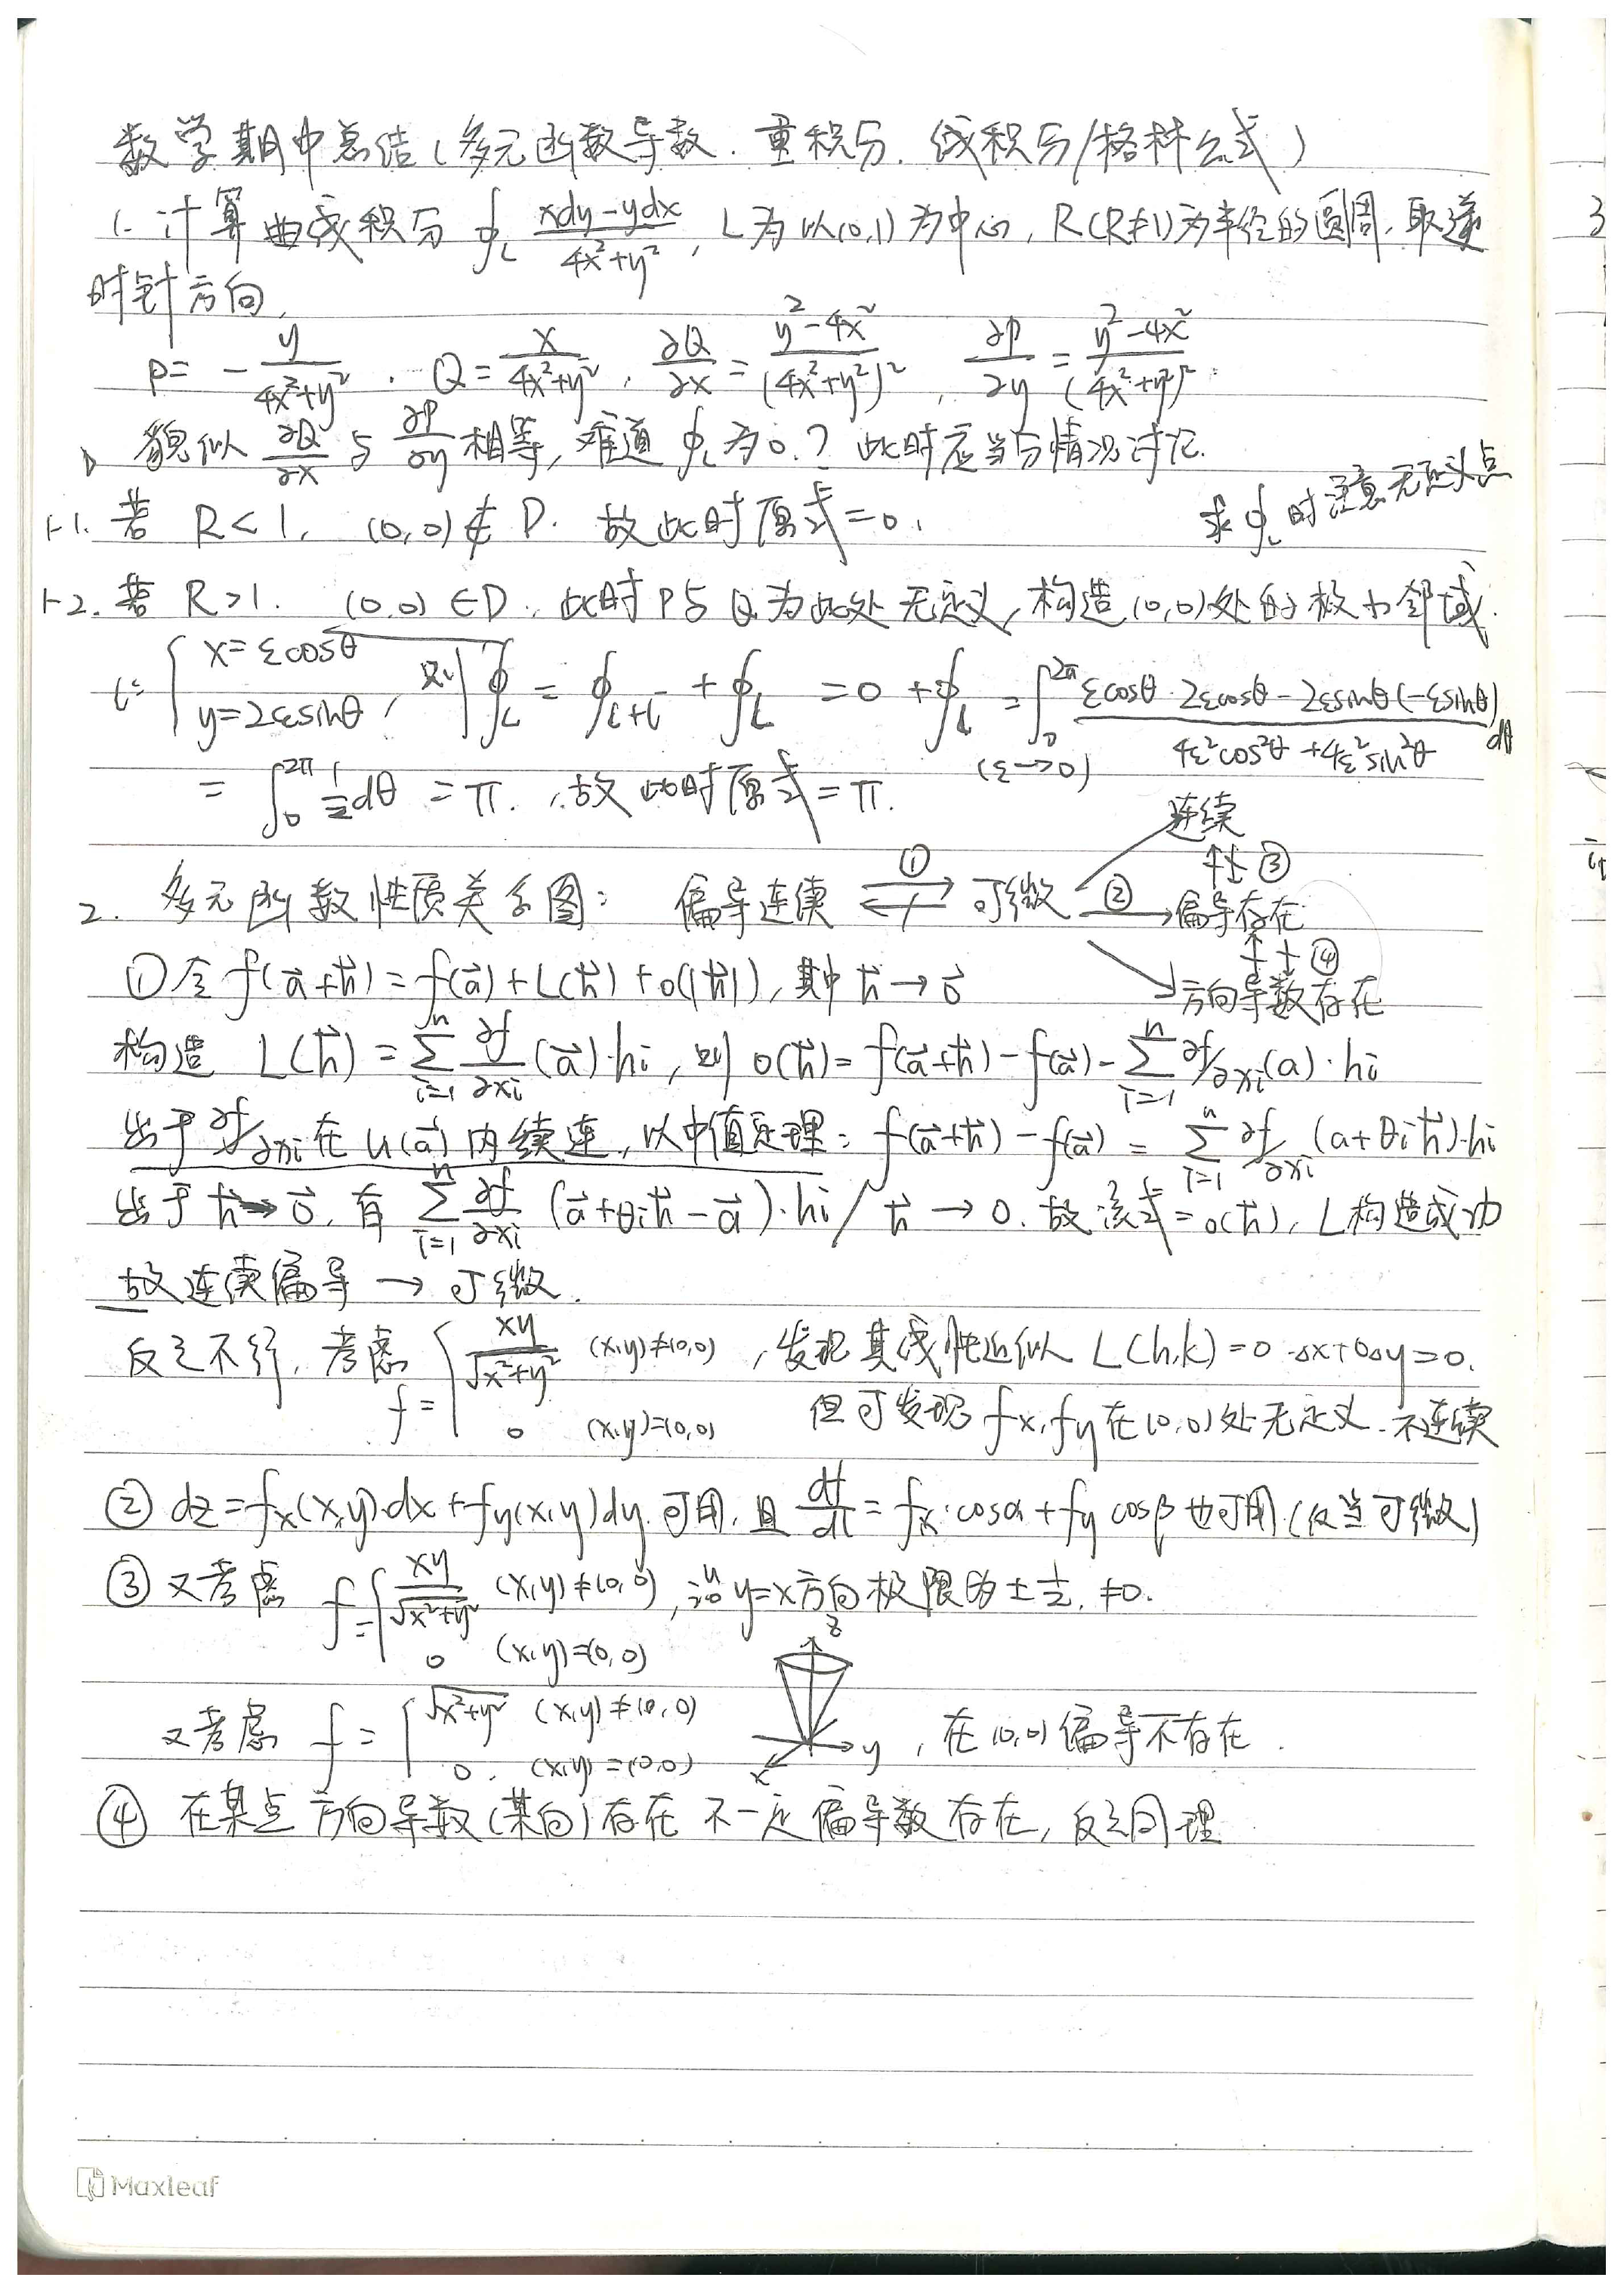 数学期中总结(多元函数导数.重积分.线积分/格林公式)
1.计算曲线积分 ∮_L (xdy-ydx)/(4x²+y²), L为以(0,1)为中心, R(R≠1)为半径的圆周,取逆
时针方向.
P= -y/(4x²+y²). Q= x/(4x²+y²), ∂Q/∂x = (y²-4x²)/(4x²+y²)², ∂P/∂y = (y²-4x²)/(4x²+y²)².
貌似 ∂Q/∂x 与 ∂P/∂y 相等,难道∮_L为0.?此时应当分情况讨论.
求∮_L时注意无定义点
1-1. 若 R<1, (0,0)∉D. 故此时原式=0.
1-2. 若 R>1. (0,0)∈D.,此时P与Q为此处无定义,构造(0,0)处的极小邻域.
l= { x=εcosθ
y=2εsinθ, 则∮_L = ∮_{L+l⁻} + ∮_l = 0 + ∮_l = ∫_0^{2π} (εcosθ·2εcosθ-2εsinθ(-εsinθ))/(4ε²cos²θ+4ε²sin²θ) dθ
(ε→0)
= ∫_0^{2π} 1/2 dθ = π. ∴故此时原式=π.
2. 多元函数性质关系图: 偏导连续 ① ⇄ 可微 → 连续
↑↓ ③
② → 偏导存在
↑↓ ④
→ 方向导数存在
①令 f(a⃗+h⃗)=f(a⃗)+L(h⃗)+o(|h⃗|),其中 h⃗→0⃗
构造 L(h⃗) = Σ_{i=1}^n ∂f/∂xi (a⃗)·hi, 则 o(h⃗)=f(a⃗+h⃗)-f(a⃗)-Σ_{i=1}^n ∂f/∂xi(a)·hi
出于 ∂f/∂xi 在 U(a⃗) 内续连,以中值定理: f(a⃗+h⃗)-f(a⃗) = Σ_{i=1}^n ∂f/∂xi (a+θih⃗)·hi
出于 h⃗→0⃗, 有 Σ_{i=1}^n ∂f/∂xi (a⃗+θih⃗-a⃗)·hi/h⃗ → 0. 故该式=o(h⃗), L构造成功
故连续偏导 → 可微.
反之不行,考虑 f = { xy/√(x²+y²) (x,y)≠(0,0) ,发现其线性近似 L(h,k)=0·Δx+0Δy=0.
0 (x,y)=(0,0) 但可发现 fx,fy在(0,0)处无定义.不连续
② dz=fx(x,y)dx+fy(x,y)dy 可用,且 df/dl = fx·cosα+fy cosβ 也可用(仅当可微)
③又考虑 f={ xy/√(x²+y²) (x,y)≠(0,0) ,沿y=x方向极限为±1/2,≠0.
0 (x,y)=(0,0)
又考虑 f = { √(x²+y²) (x,y)≠(0,0) z y x ,在(0,0)偏导不存在.
0. (x,y)=(0,0)
④ 在某点方向导数(某向)存在不一定偏导数存在,反之同理
Maxleaf